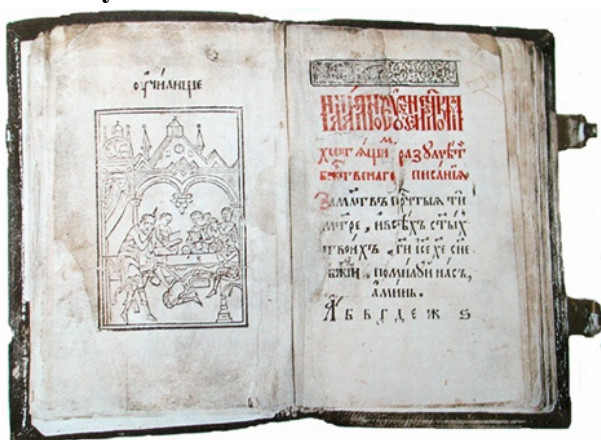 ѹ҆чи́лище
хотѧ́щиⷨ разꙋмѣ́ти
бжⷭ҇твенаго писа́нїѧ
За мл҃твъ прⷭ҇тыѧ ти
мт҃ре , и҆всѣ́хъ ст҃ы́хъ
твои́хъ , гⷭ҇и і҆с҃е х҃е сн҃е
бж҃їи , поми́лꙋй на́съ ,
а҆ми́нь .
А Б В Г Д Е Ж Ѕ